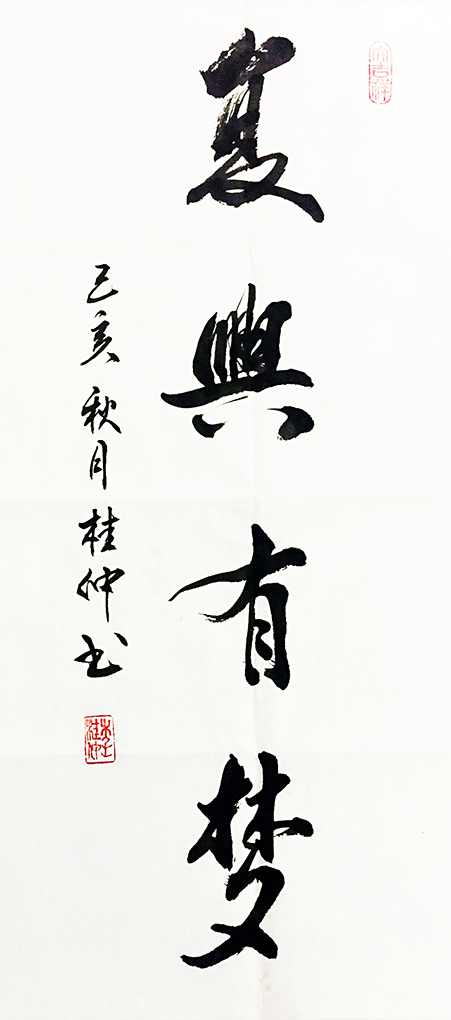 复興有梦
己亥秋月桂仲书